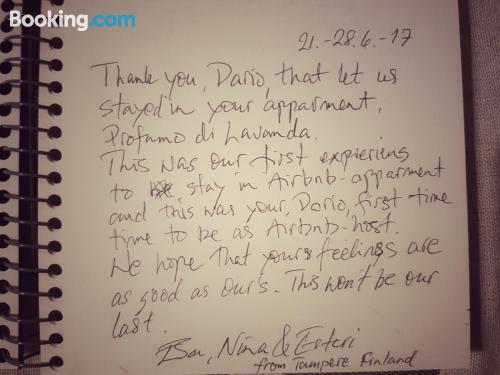 Booking.com
21.-28.6.-17
Thank you, Dario, that let us
stayed in your apparment,
Profumo di Lavanda.
This was our first expieriens
to stay in Airbnb-apparment
and this was your, Dario, first-time
time to be as Airbnb-host.
We hope that yours feelings are
as good as our's. This won't be our
last.
Nina & Esteri
from Tampere Finland